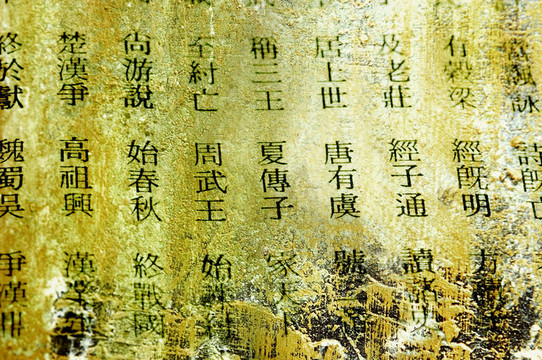 諷詠 詩既亡
有穀梁 經既明 方
及老莊 經子通 讀諸史
居上世 唐有虞 號
稱三王 夏傳子 家天下
至紂亡 周武王 始
尚游說 始春秋 終戰國
楚漢爭 高祖興 漢業建
終於獻 魏蜀吳 爭漢鼎